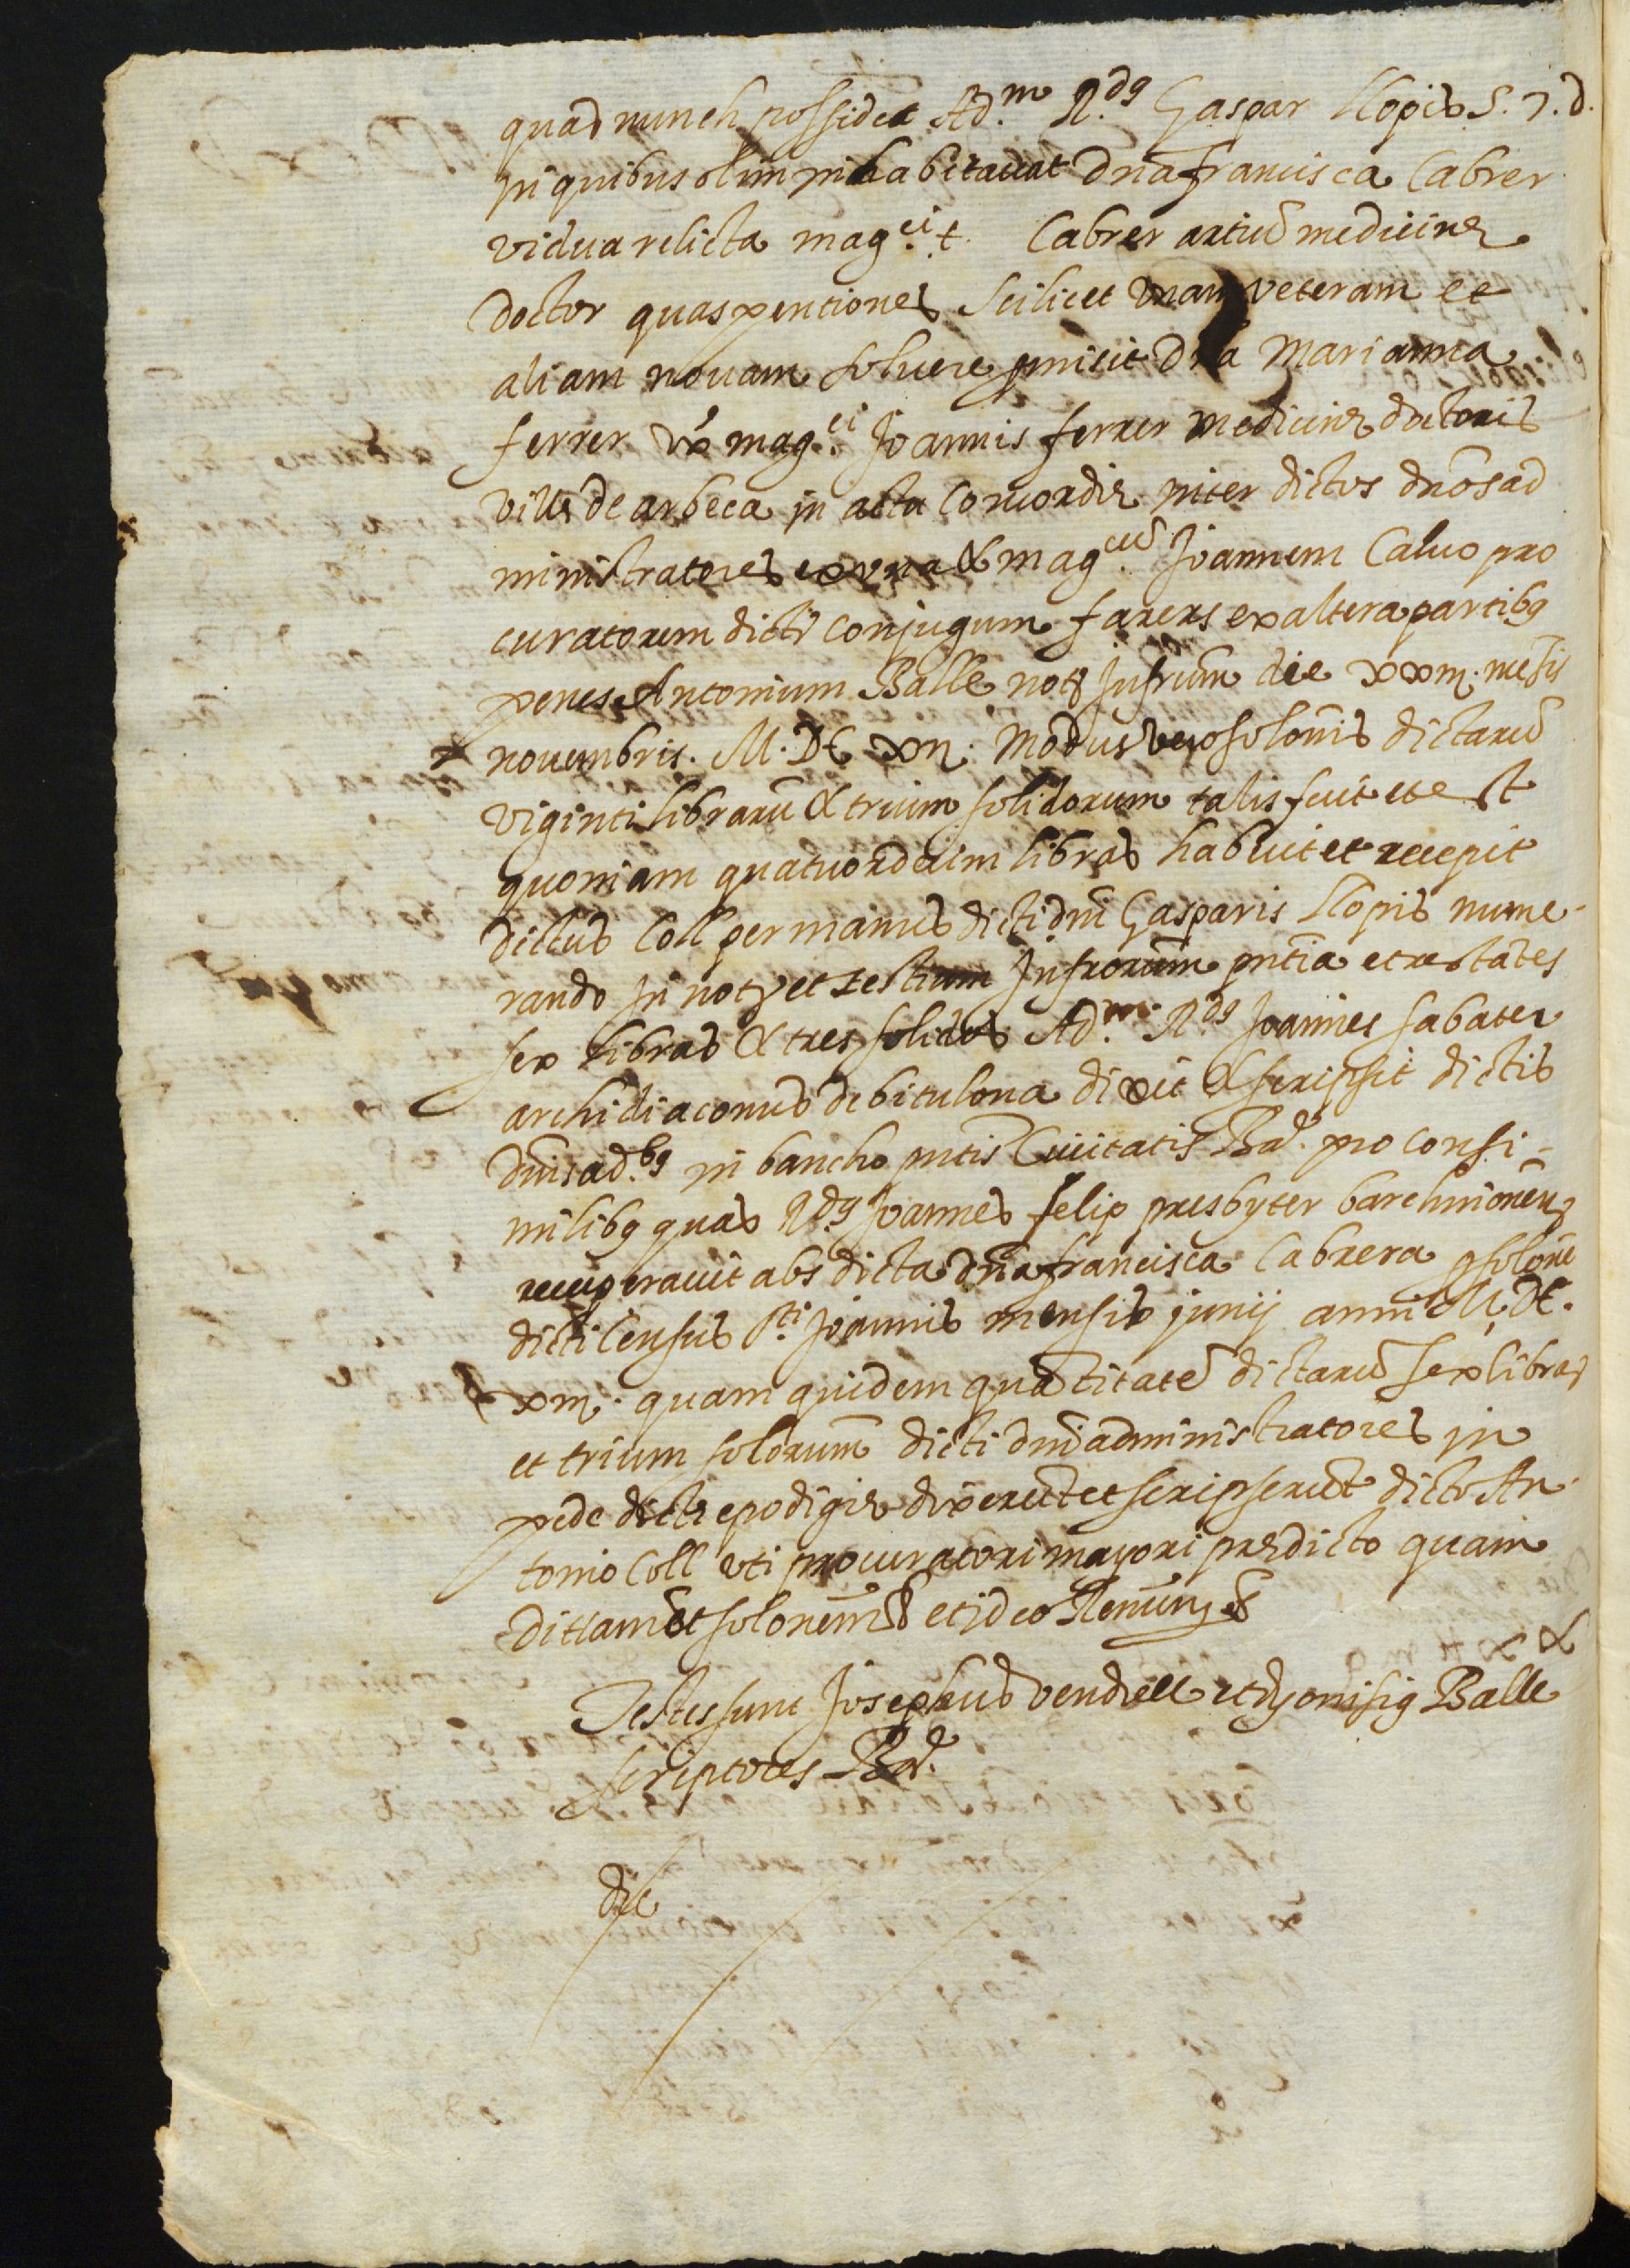 quas nunch possidet Ad.m R.dꝯ Gaspar Llopis S. T. d.
in quibus olim inhabitavat dña francisca Cabrer
vidua relicta mag.ci t. Cabrer artiũ medicinę
doctor quas pentiones scilicet unam veteram et
aliam novam solvere pmisit dña Marianna
ferrer ux̃ mag.ci Joannis ferrer medicinę doctoris
villę de arbeca in actu concordię inter dictos dños ad
ministratores ex una & mag.cũ Joannem Calvo pro
curatorem dictꝝ conjugum farrers ex altera partibꝯ
penes Antonium Batlle notꝝ infrũm die xxiij. mẽsis
novembris. M.DC xij. modus vero solonis dictarũ
viginti librarũ & trium solidorum talis fuit et est
quoniam quatuordecim libras habuit et recepit
dictus Coll per manus dicti dñi Gasparis Llopis nume-
rando in notꝝ et testium infrorum pñtia et restãtes
sex libras & tres solidos Ad.m R.dꝯ Joannes sabater
archidiaconus de bitulona dixit & scripsit dictis
dñis ad.bꝯ in bancho pñtis Civitatis Bar.e pro consi-
milibꝯ quas R.dꝯ Joannes felip presbyter barchinonenꝫ
recuperavit abs dicta dña francisca Cabrera ꝑ solone
dicti Census S.ti Joannis mensis junij anni M.DC.
xiij. quam quidem quãtitatẽ dictarũ sex librarꝝ
et trium solorum dicti dñi administratores in
pede dictę epodigię dixerũt et scripserũt dicto An-
tonio Coll uti procuratori majori prędicto quam
dictam & solonem & et ideo Renun̄ &
Testes sunt Josephus vendrell et dyonisiꝯ Batlle
scriptores Bar.e
die